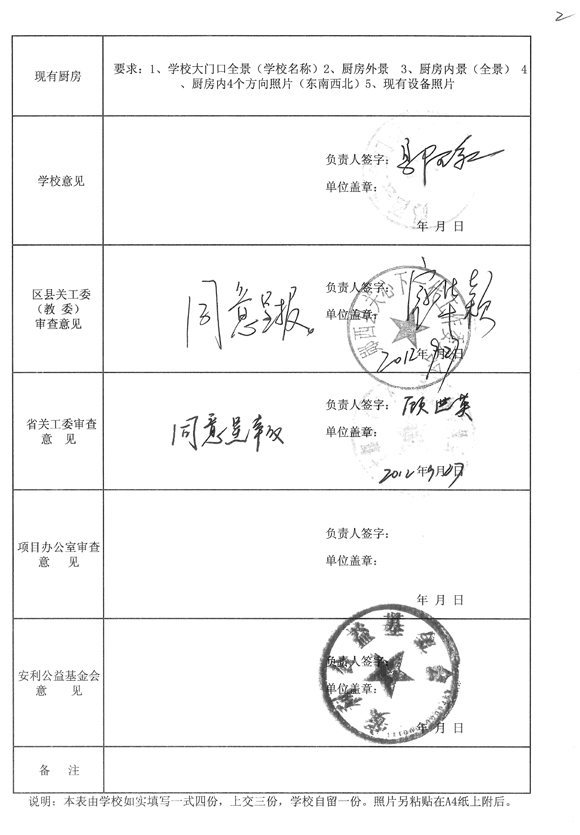 2
现有厨房
要求：1、学校大门口全景（学校名称）2、厨房外景　3、厨房内景（全景）　4
、厨房内4个方向照片（东南西北）5、现有设备照片
学校意见
负责人签字：
单位盖章：
年 月 日
区县关工委
（教 委）
审查意见
同意呈报。
负责人签字：
单位盖章：
2012年9月27日
省关工委审查
意　见
同意呈报
负责人签字：顾世英
单位盖章：
2012年9月27日
项目办公室审查
意　见
负责人签字：
单位盖章：
年 月 日
安利公益基金会
意　见
负责人签字：
单位盖章：
年 月 日
备　注
说明：本表由学校如实填写一式四份，上交三份，学校自留一份。照片另粘贴在A4纸上附后。